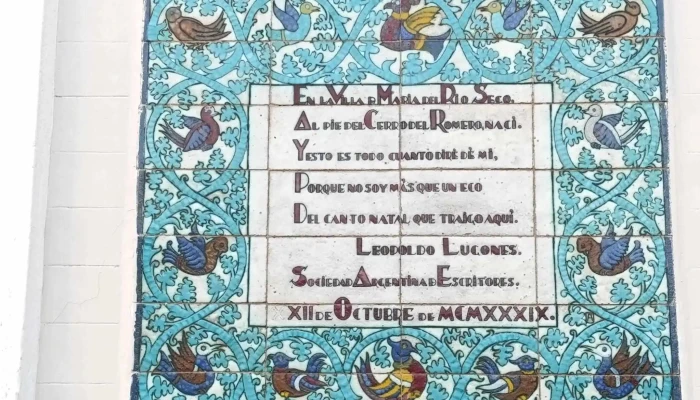 En la Villa D María del Río Seco,
Al pie del Cerro del Romero, nací.
Y esto es todo cuanto diré dé mí,
Porque no soy más que un eco
Del canto natal que traigo aquí.
Leopoldo Lugones.
Sociedad Argentina D Escritores.
XII de Octubre de MCMXXXIX.